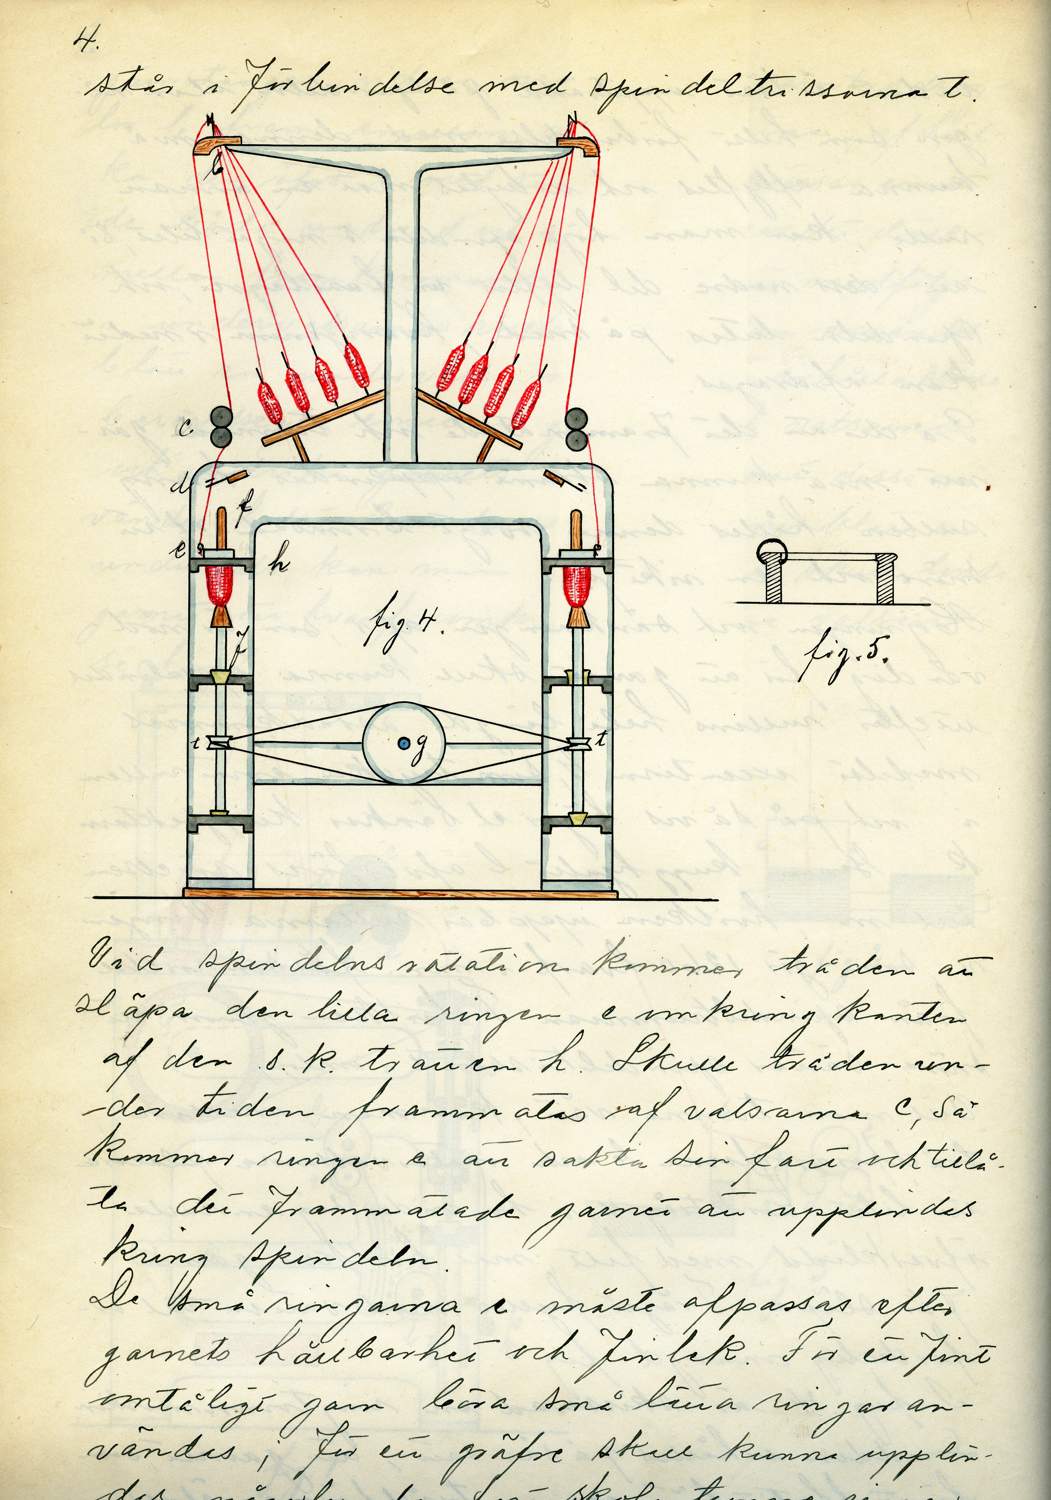 4.
står i förbindelse med spindeltrissorna t.
b
c
d
f
e
h
fig. 4.
f
fig. 5.
t
g
t
Vid spindelns rotation kommer tråden att
släpa den lilla ringen e omkring kanten
af den s. k. tratten h. Skulle tråden un-
-der tiden frammatas af valsarna C, så
kommer ringen e att sakta sin fart och tillå-
ta det frammatade garnet att upplindas
kring spindeln.
De små ringarna e måste afpassas efter
garnets hållbarhet och finlek. För ett fint
omtåligt garn böra små lätta ringar an-
vändas ; för ett gröfre skall kunna upplin-
das